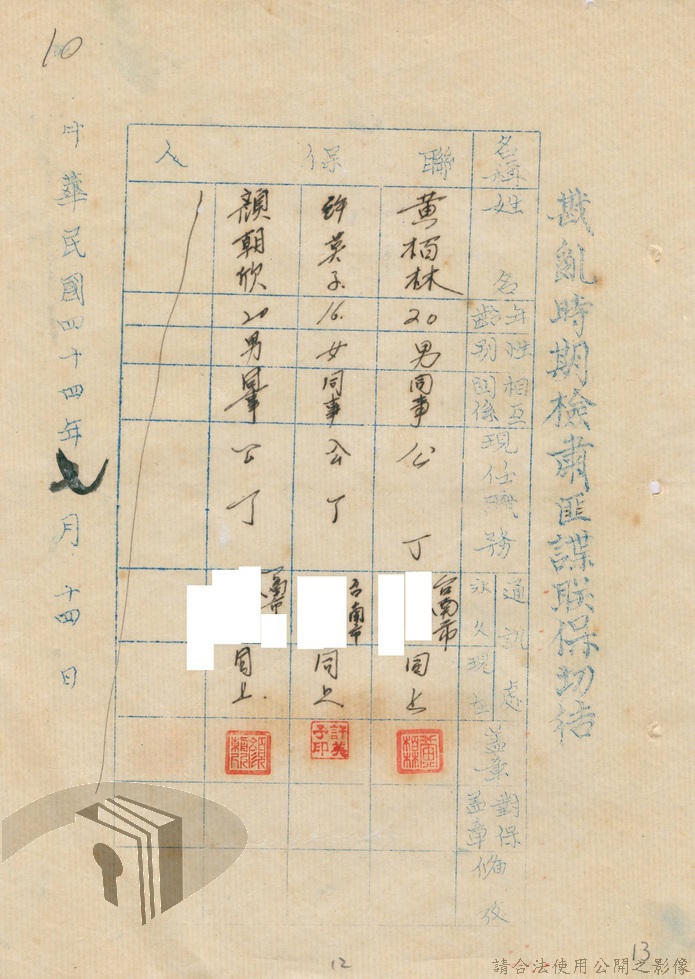 10
戡亂時期檢肅匪諜联保切結
名稱
聯保人
姓名
黃栢林
許英子
顏朝欣
年齡
20
16
20
性別
男
女
男
相互關係
同事
同事
同事
現任職務
公丁
公丁
公丁
通訊處
永久
台南市
台南市
台南市
現在
同上
同上
同上
蓋章
黃栢林
許英子印
對保蓋章
備攷
中華民國四十四年七月十四日
12
13
請合法使用公開之影像